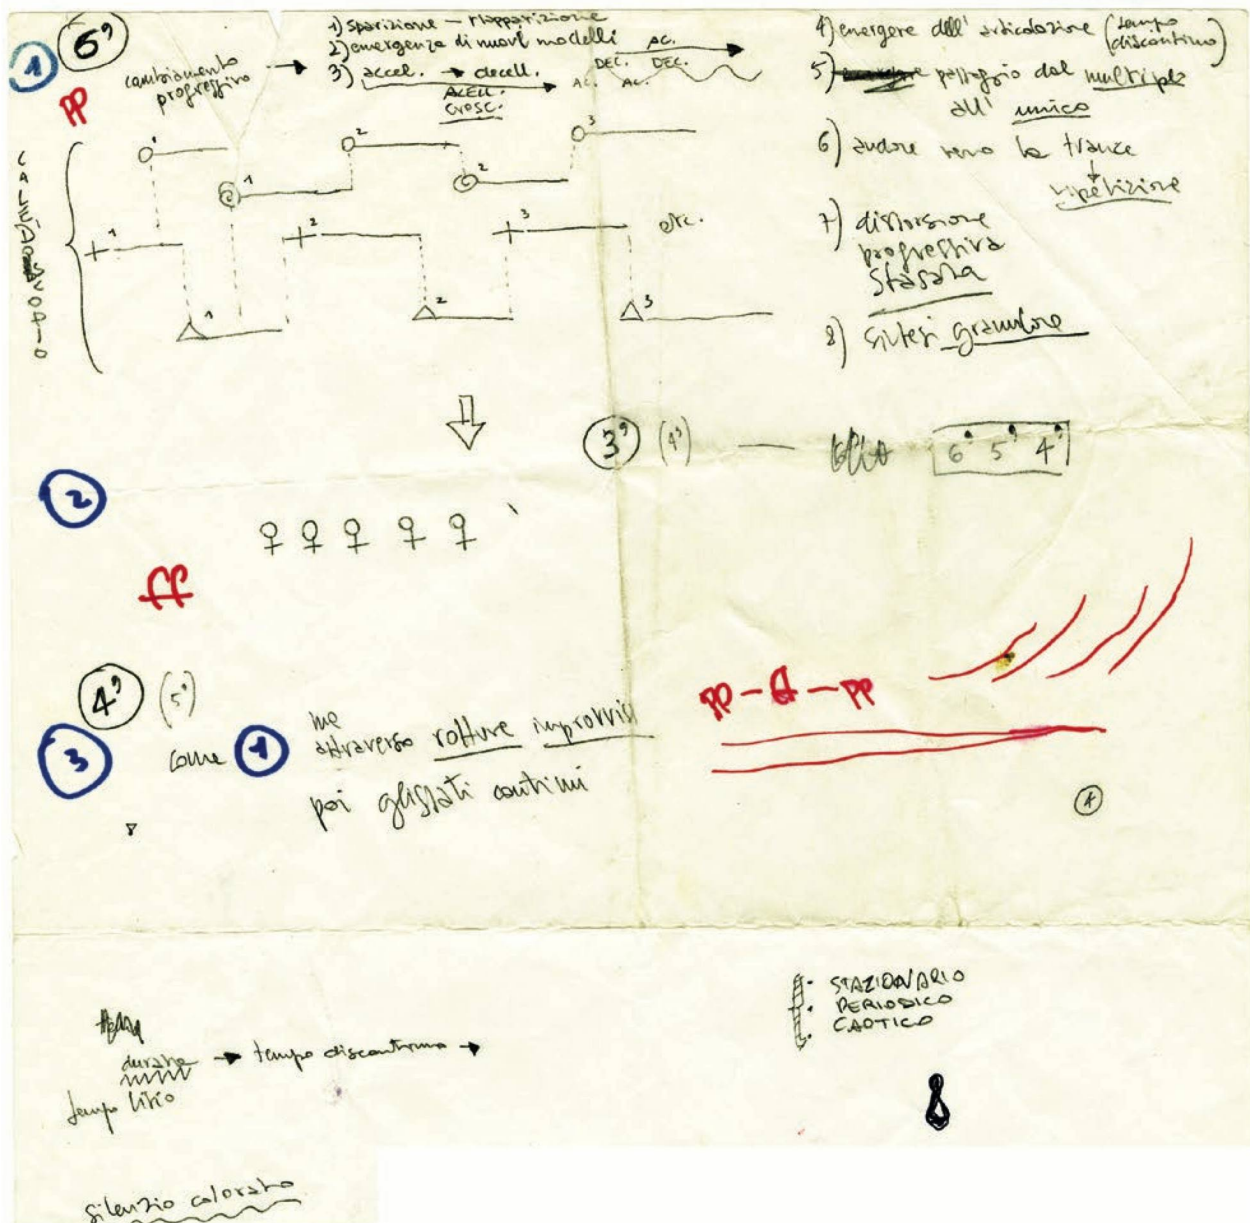 1
6'
PP
cambiamento
progressivo
1) sparizione - riapparizione
2) emergenza di nuovi modelli
3) accel. → decell.
ACELL.
CRESC.
AC.
DEC. DEC.
AC. AC.
4) emergere dell'articolazione (tempo
discontinuo)
5) passaggio dal multiplo
all'unico
6) andare verso la trance
ripetizione
7) distorsione
progressiva
sfasata
8) sintesi granulare
1 2 3
1 2
1 2 3 etc.
1 2 3
3' (4') — 6' 5' 4'
2
ff
4' (5')
3 come 1
ma
attraverso rotture improvvise
poi glissati continui
PP - ff - PP
1
STAZIONARIO
PERIODICO
CAOTICO
durata → tempo discontinuo →
tempo liscio
silenzio colorato